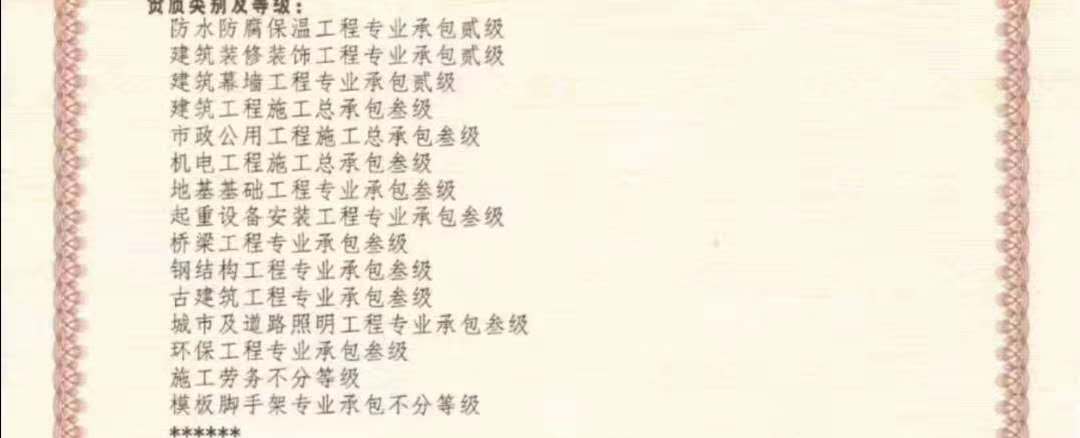 资质类别及等级：
防水防腐保温工程专业承包贰级
建筑装修装饰工程专业承包贰级
建筑幕墙工程专业承包贰级
建筑工程施工总承包叁级
市政公用工程施工总承包叁级
机电工程施工总承包叁级
地基基础工程专业承包叁级
起重设备安装工程专业承包叁级
桥梁工程专业承包叁级
钢结构工程专业承包叁级
古建筑工程专业承包叁级
城市及道路照明工程专业承包叁级
环保工程专业承包叁级
施工劳务不分等级
模板脚手架专业承包不分等级
******